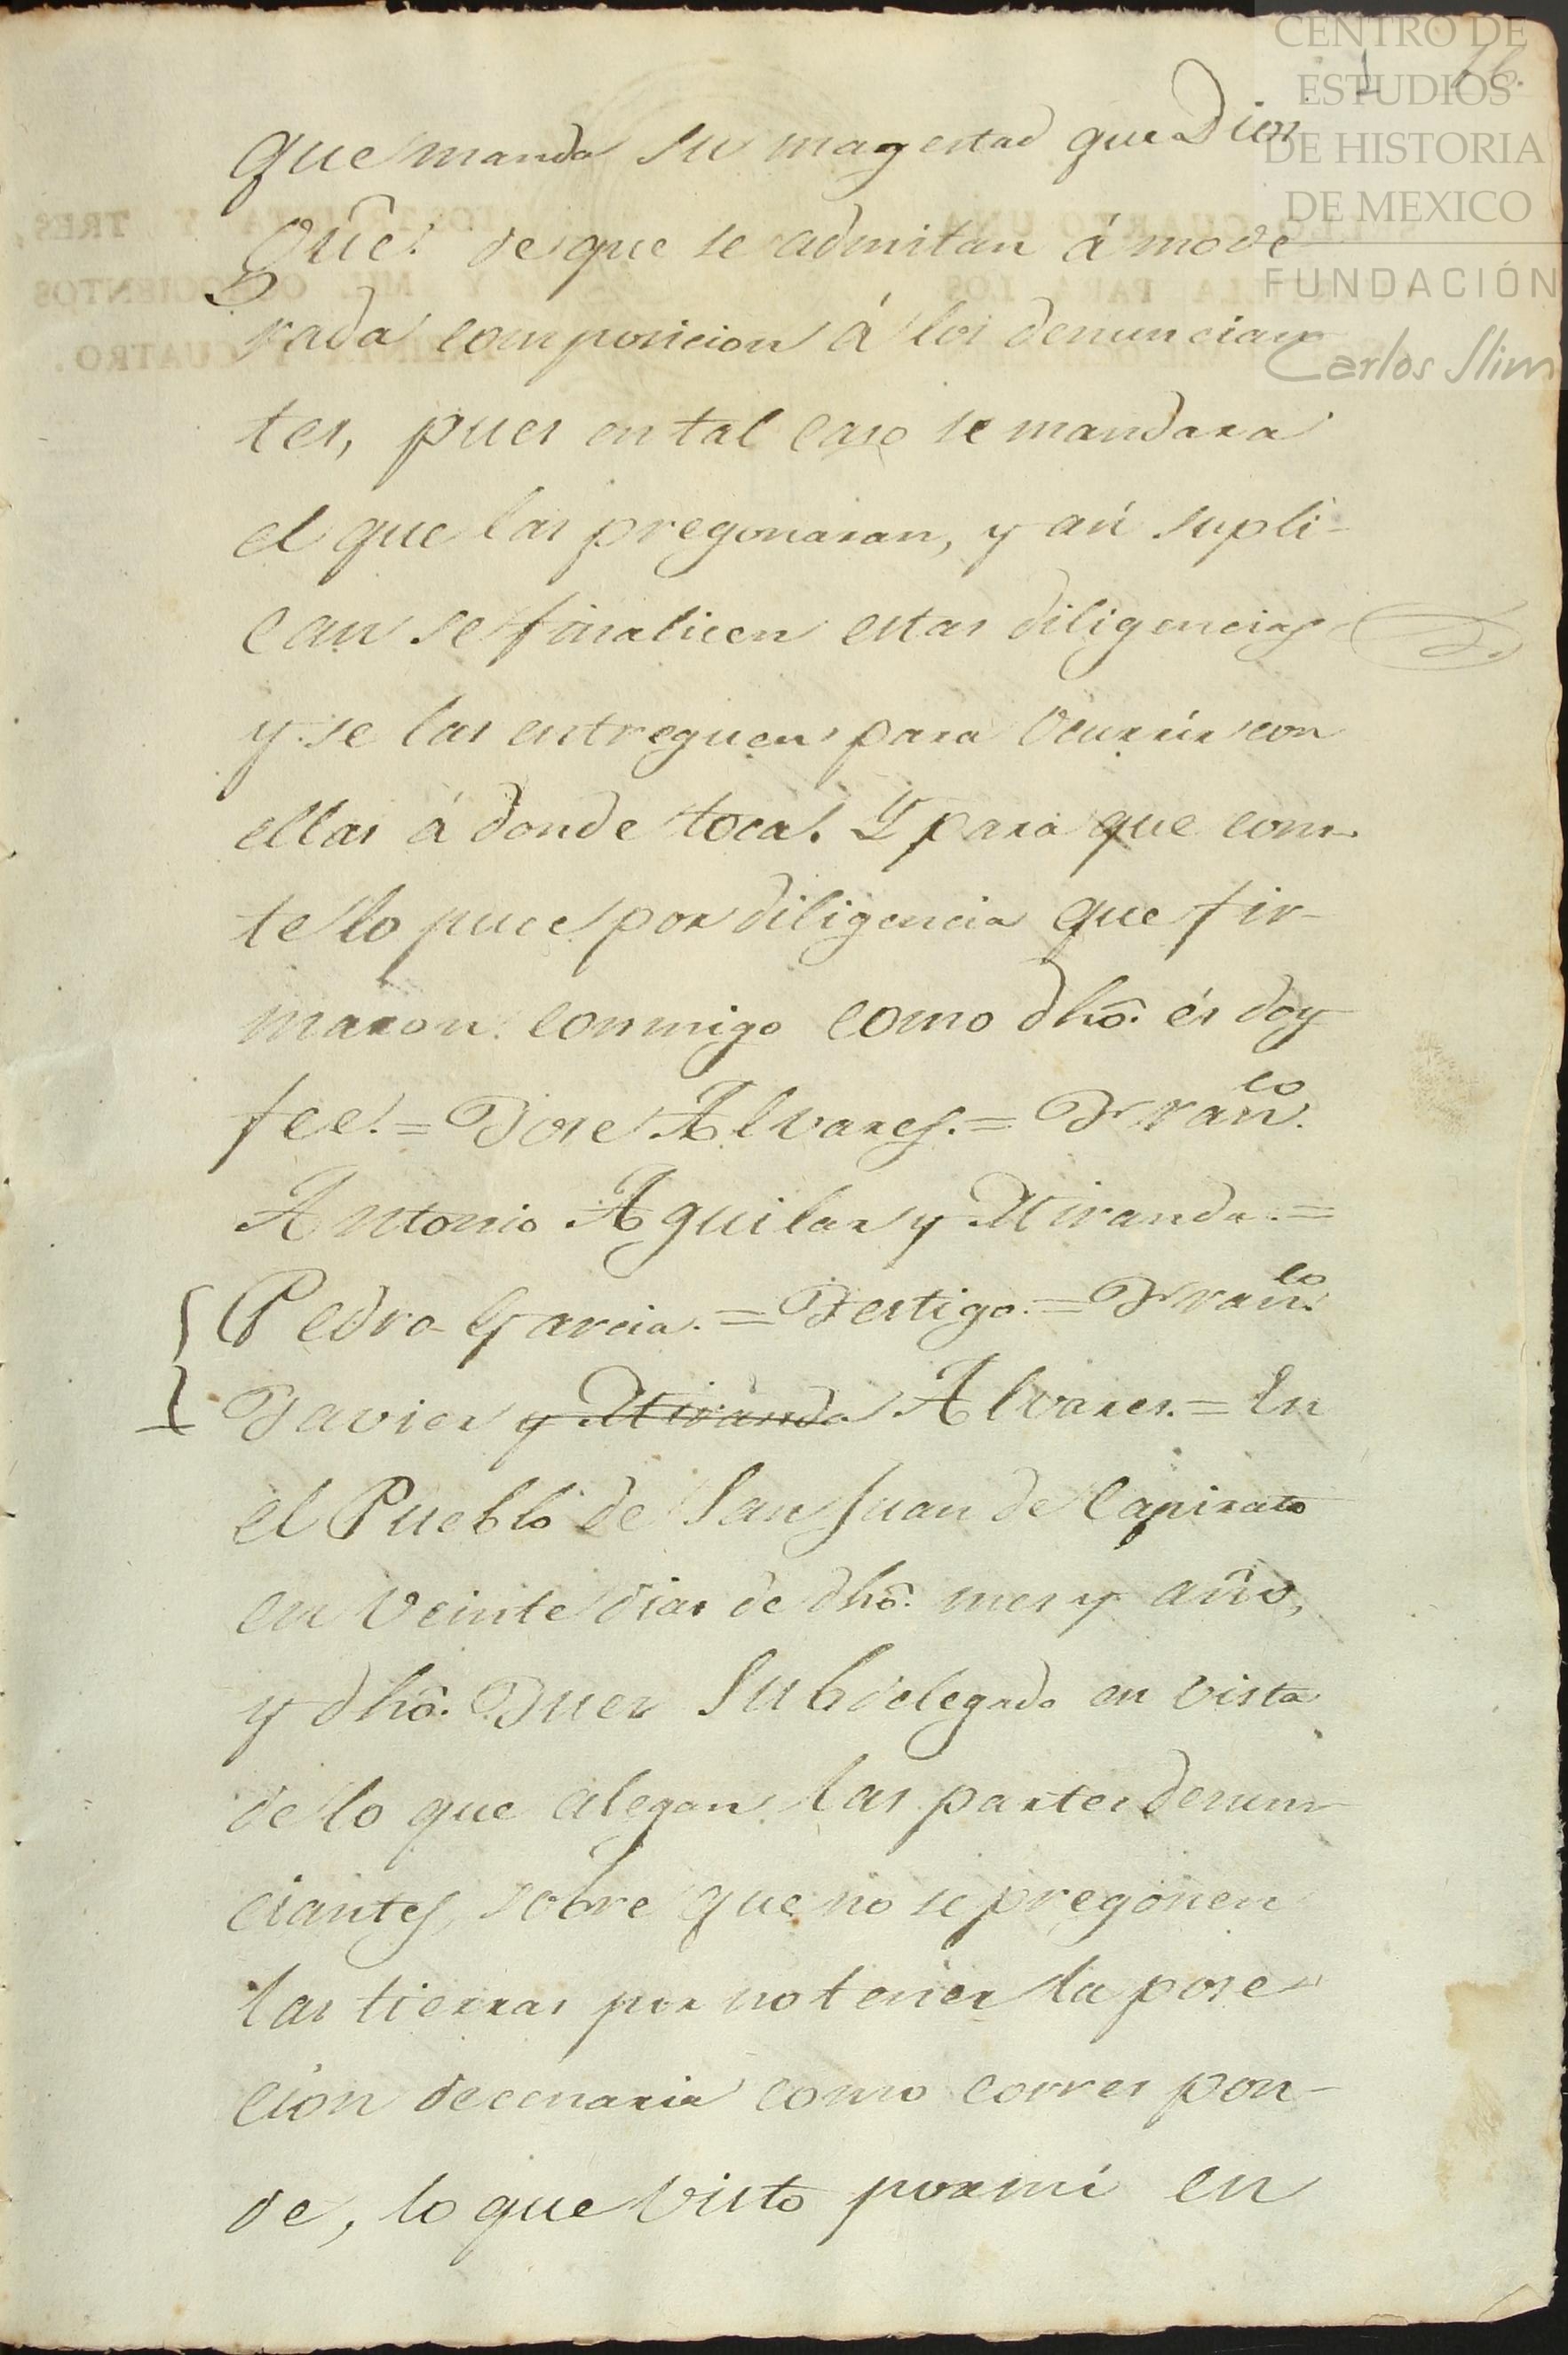 CENTRO DE
ESTUDIOS
DE HISTORIA
DE MEXICO
FUNDACIÓN
Carlos Slim
1 16.
que manda su magestad que Dios
gũe. de que se admitan á mode
rada composicion á los denuncian
tes, pues en tal caso se mandara
el que las pregonaran, y asi supli-
can se finalicen estas diligencias
y se las entreguen para ocurrir con
ellas á donde toca. Y para que cons-
te lo puce por diligencia que fir-
maron conmigo como dhõ. és doy
fee. = Jose Alvares. = Fran.co
Antonio Aguilar y Miranda. =
Pedro Garcia. = Testigo. = Fran.co
Javier y Miranda Alvares. = En
el Pueblo de San Juan de Capirato
en veinte dias de dhõ. mes y año,
y dhõ. Juez Subdelegado en vista
de lo que alegan las partes denun-
ciantes, sobre que no se pregonen
las tierras por no tener la pose-
cion decenaria como correspon-
de, lo que visto por mi en